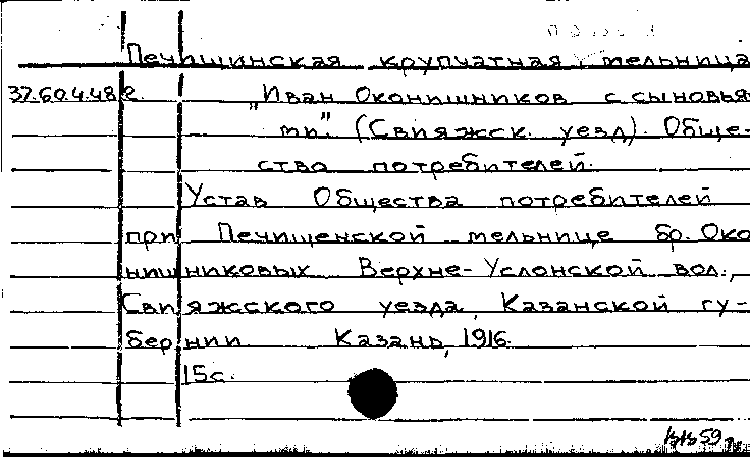 Печищинская крупчатная мельница
37.60.4.48 г. „Иван Оконишников с сыновья-
ми". (Свияжск. уезд). Обще-
ство потребителей.
Устав Общества потребителей
при Печищенской мельнице бр. Око
нишниковых Верхне-Услонской вол.,
Свияжского уезда, Казанской гу-
бернии Казань, 1916.
15с.